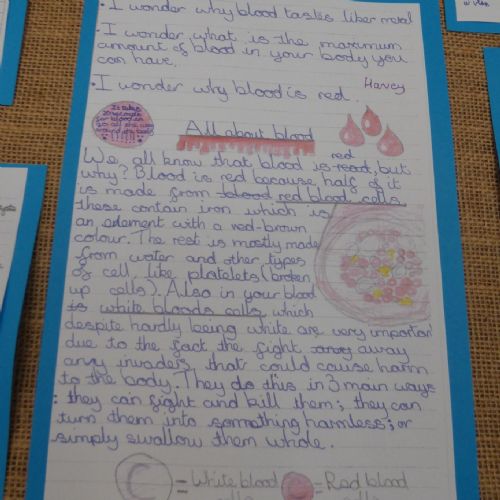 • I wonder why blood tastes like metal
• I wonder what is the maximum
amount of blood in your body you
can have.
• I wonder why blood is red. Harvey
It takes
for blood to
go all the way
around the body
All about blood
We all know that blood is read, red but
why? Blood is red because half of it
is made from blood red blood cells
these contain iron which is
an element with a red-brown
colour. The rest is mostly made
from water and other types
of cell, like platelets (broken
up cells). Also in your blood
is white bloods cells which
despite hardly being white are very important
due to the fact the fight away
any invaders that could cause harm
to the body. They do this in 3 main ways
: they can fight and kill them; they can
turn them into something harmless; or
simply swallow them whole.
= White blood = Red blood